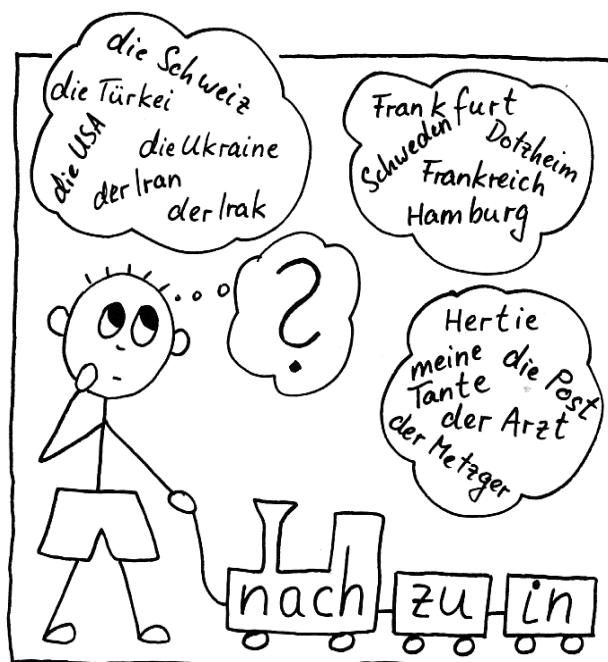 die Schweiz
die Türkei
die USA
die Ukraine
der Iran
der Irak
Frankfurt
Schweden
Dotzheim
Frankreich
Hamburg
?
Hertie
meine Tante
die Post
der Arzt
der Metzger
nach
zu
in